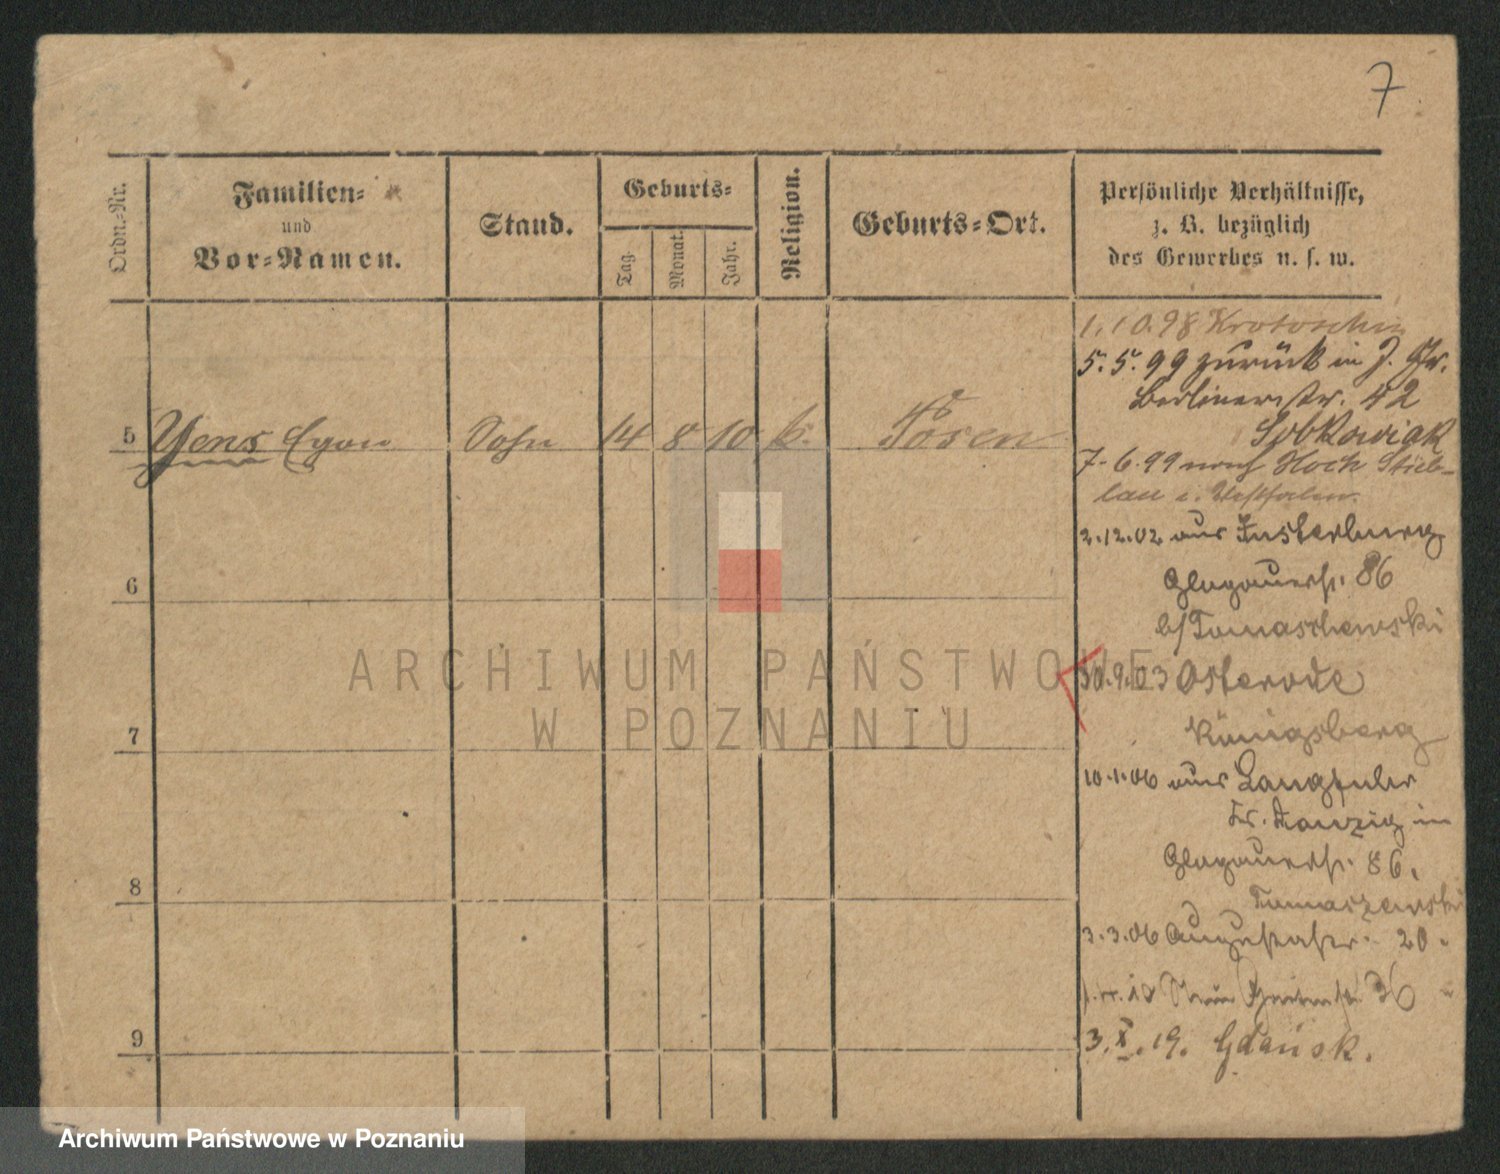 7
Ordn.-Nr.
Familien-
und
Vor-Namen.
Stand.
Geburts-
Tag.
Monat.
Jahr.
Religion.
Geburts-Ort.
Persönliche Verhältnisse,
z. B. bezüglich
des Gewerbes u. s. w.
1.10.98 Krotoschin
5.5.99 zurück in J. Gr.
Berlinerstr. 42
Sobkowiak
5 Yens Egon Sohn 14 8 10 k. Posen
7.6.99 nach Hoch Stüb-
lau i. Westfalen.
2.12.02 aus Insterburg
Glogauerstr. 86
b/Tomaschewski
6
30.9.03 Osterode
Königsberg
7
10.1.06 aus Langfuhr
Kr. Danzig in
Glogauerstr. 86.
Tomaszewski
8
3.3.06 Augustastr. 20.
36
3.X.19. Gdańsk.
9
ARCHIWUM PAŃSTWOWE
W POZNANIU
Archiwum Państwowe w Poznaniu